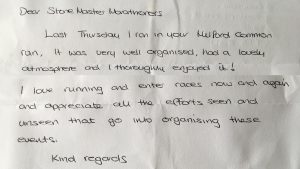 Dear Stone Master Marathoners
Last Thursday I ran in your Milford Common
run, It was very well organised, had a lovely
atmosphere and I thoroughly enjoyed it!
I love running and enter races now and again
and appreciate all the efforts seen and
unseen that go into organising these
events.
Kind regards